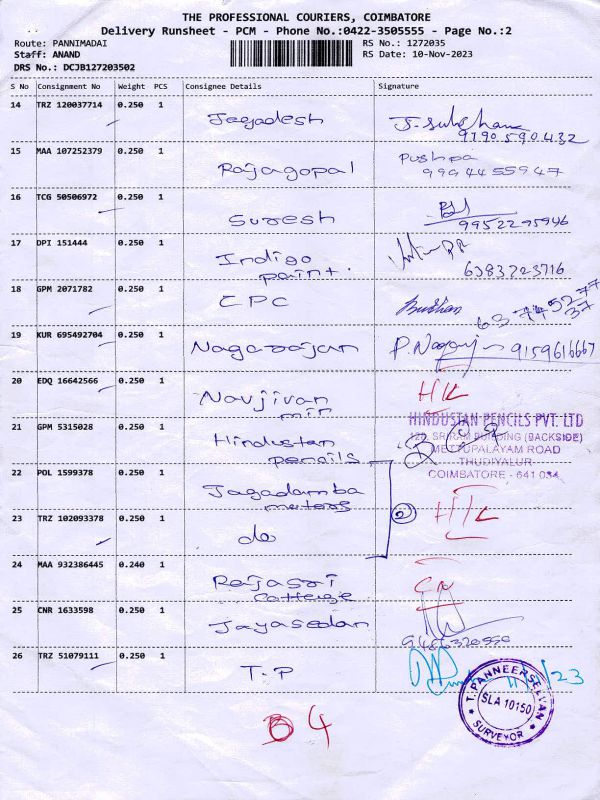 THE PROFESSIONAL COURIERS, COIMBATORE
Delivery Runsheet - PCM - Phone No.:0422-3505555 - Page No.:2
Route: PANNIMADAI RS No.: 1272035
Staff: ANAND RS Date: 10-Nov-2023
DRS No.: DCJB127203502
S No Consignment No Weight PCS Consignee Details Signature
14 TRZ 120037714 0.250 1
Jagadesh
9190590432
15 MAA 107252379 0.250 1 Pushpa
Rajagopal 9994455947
16 TCG 50506972 0.250 1
Suresh 9952295946
17 DPI 151444 0.250 1
Indigo
paint. 6383223716
18 GPM 2071782 0.250 1
CPC
19 KUR 695492704 0.250 1
Nagarajan P. Nagaraj 9159616667
20 EDQ 16642566 0.250 1
Navjivan
21 GPM 5315028 0.250 1 HINDUSTAN PENCILS PVT. LTD
Hindustan SRIRAM BUILDING (BACKSIDE)
pencils METTUPALAYAM ROAD
THUDIYALUR
22 POL 1599378 0.250 1 COIMBATORE - 641 034
Jagadamba
motors
2
23 TRZ 102093378 0.250 1
do
24 MAA 932386445 0.240 1
Rajasri
cottege
25 CNR 1633598 0.250 1
Jayaseelan
9486320550
26 TRZ 51079111 0.250 1
T.P
T. PANNEERSELVAN
SLA 10150
SURVEYOR
B 4